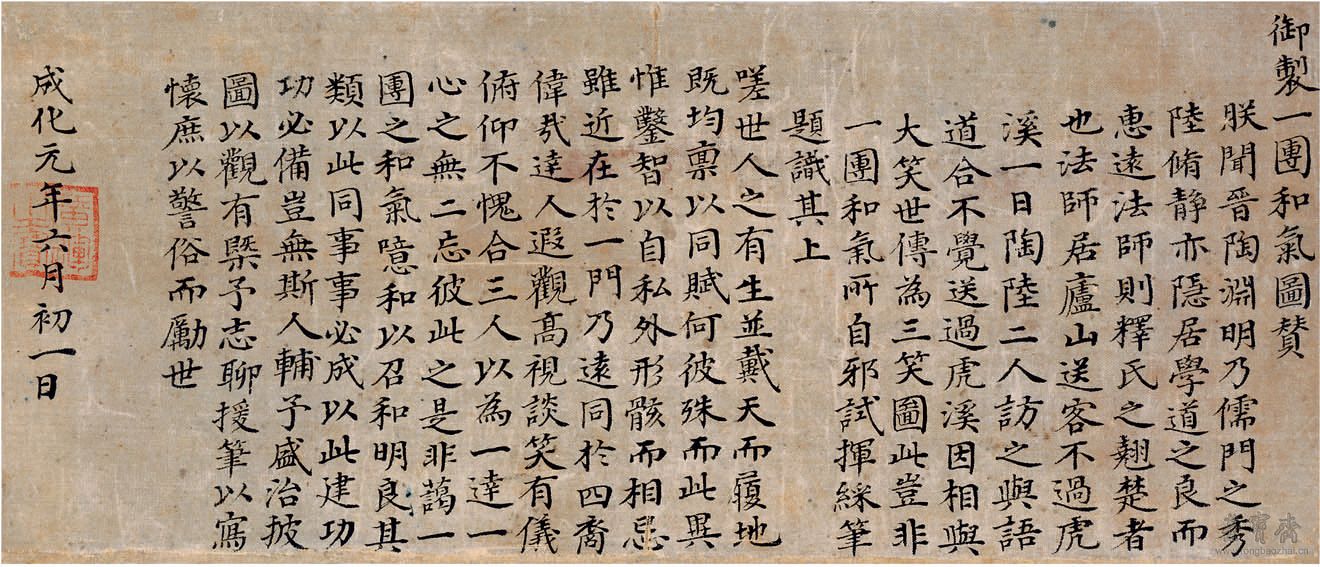 御製一團和氣圖賛
朕聞晉陶淵明乃儒門之秀
陸脩靜亦隱居學道之良而
惠遠法師則釋氏之翹楚者
也法師居廬山送客不過虎
溪一日陶陸二人訪之與語
道合不覺送過虎溪因相與
大笑世傳為三笑圖此豈非
一團和氣所自邪試揮綵筆
題識其上
嗟世人之有生並戴天而履地
既均禀以同賦何彼殊而此異
惟鑿智以自私外形骸而相忌
雖近在於一門乃遠同於四裔
偉哉達人遐觀高視談笑有儀
俯仰不愧合三人以為一達一
心之無二忘彼此之是非藹一
團之和氣噫和以召和明良其
類以此同事事必成以此建功
功必備豈無斯人輔予盛治披
圖以觀有槩予志聊援筆以寫
懷庶以警俗而勵世
成化元年六月初一日
www.rongbaozhai.cn